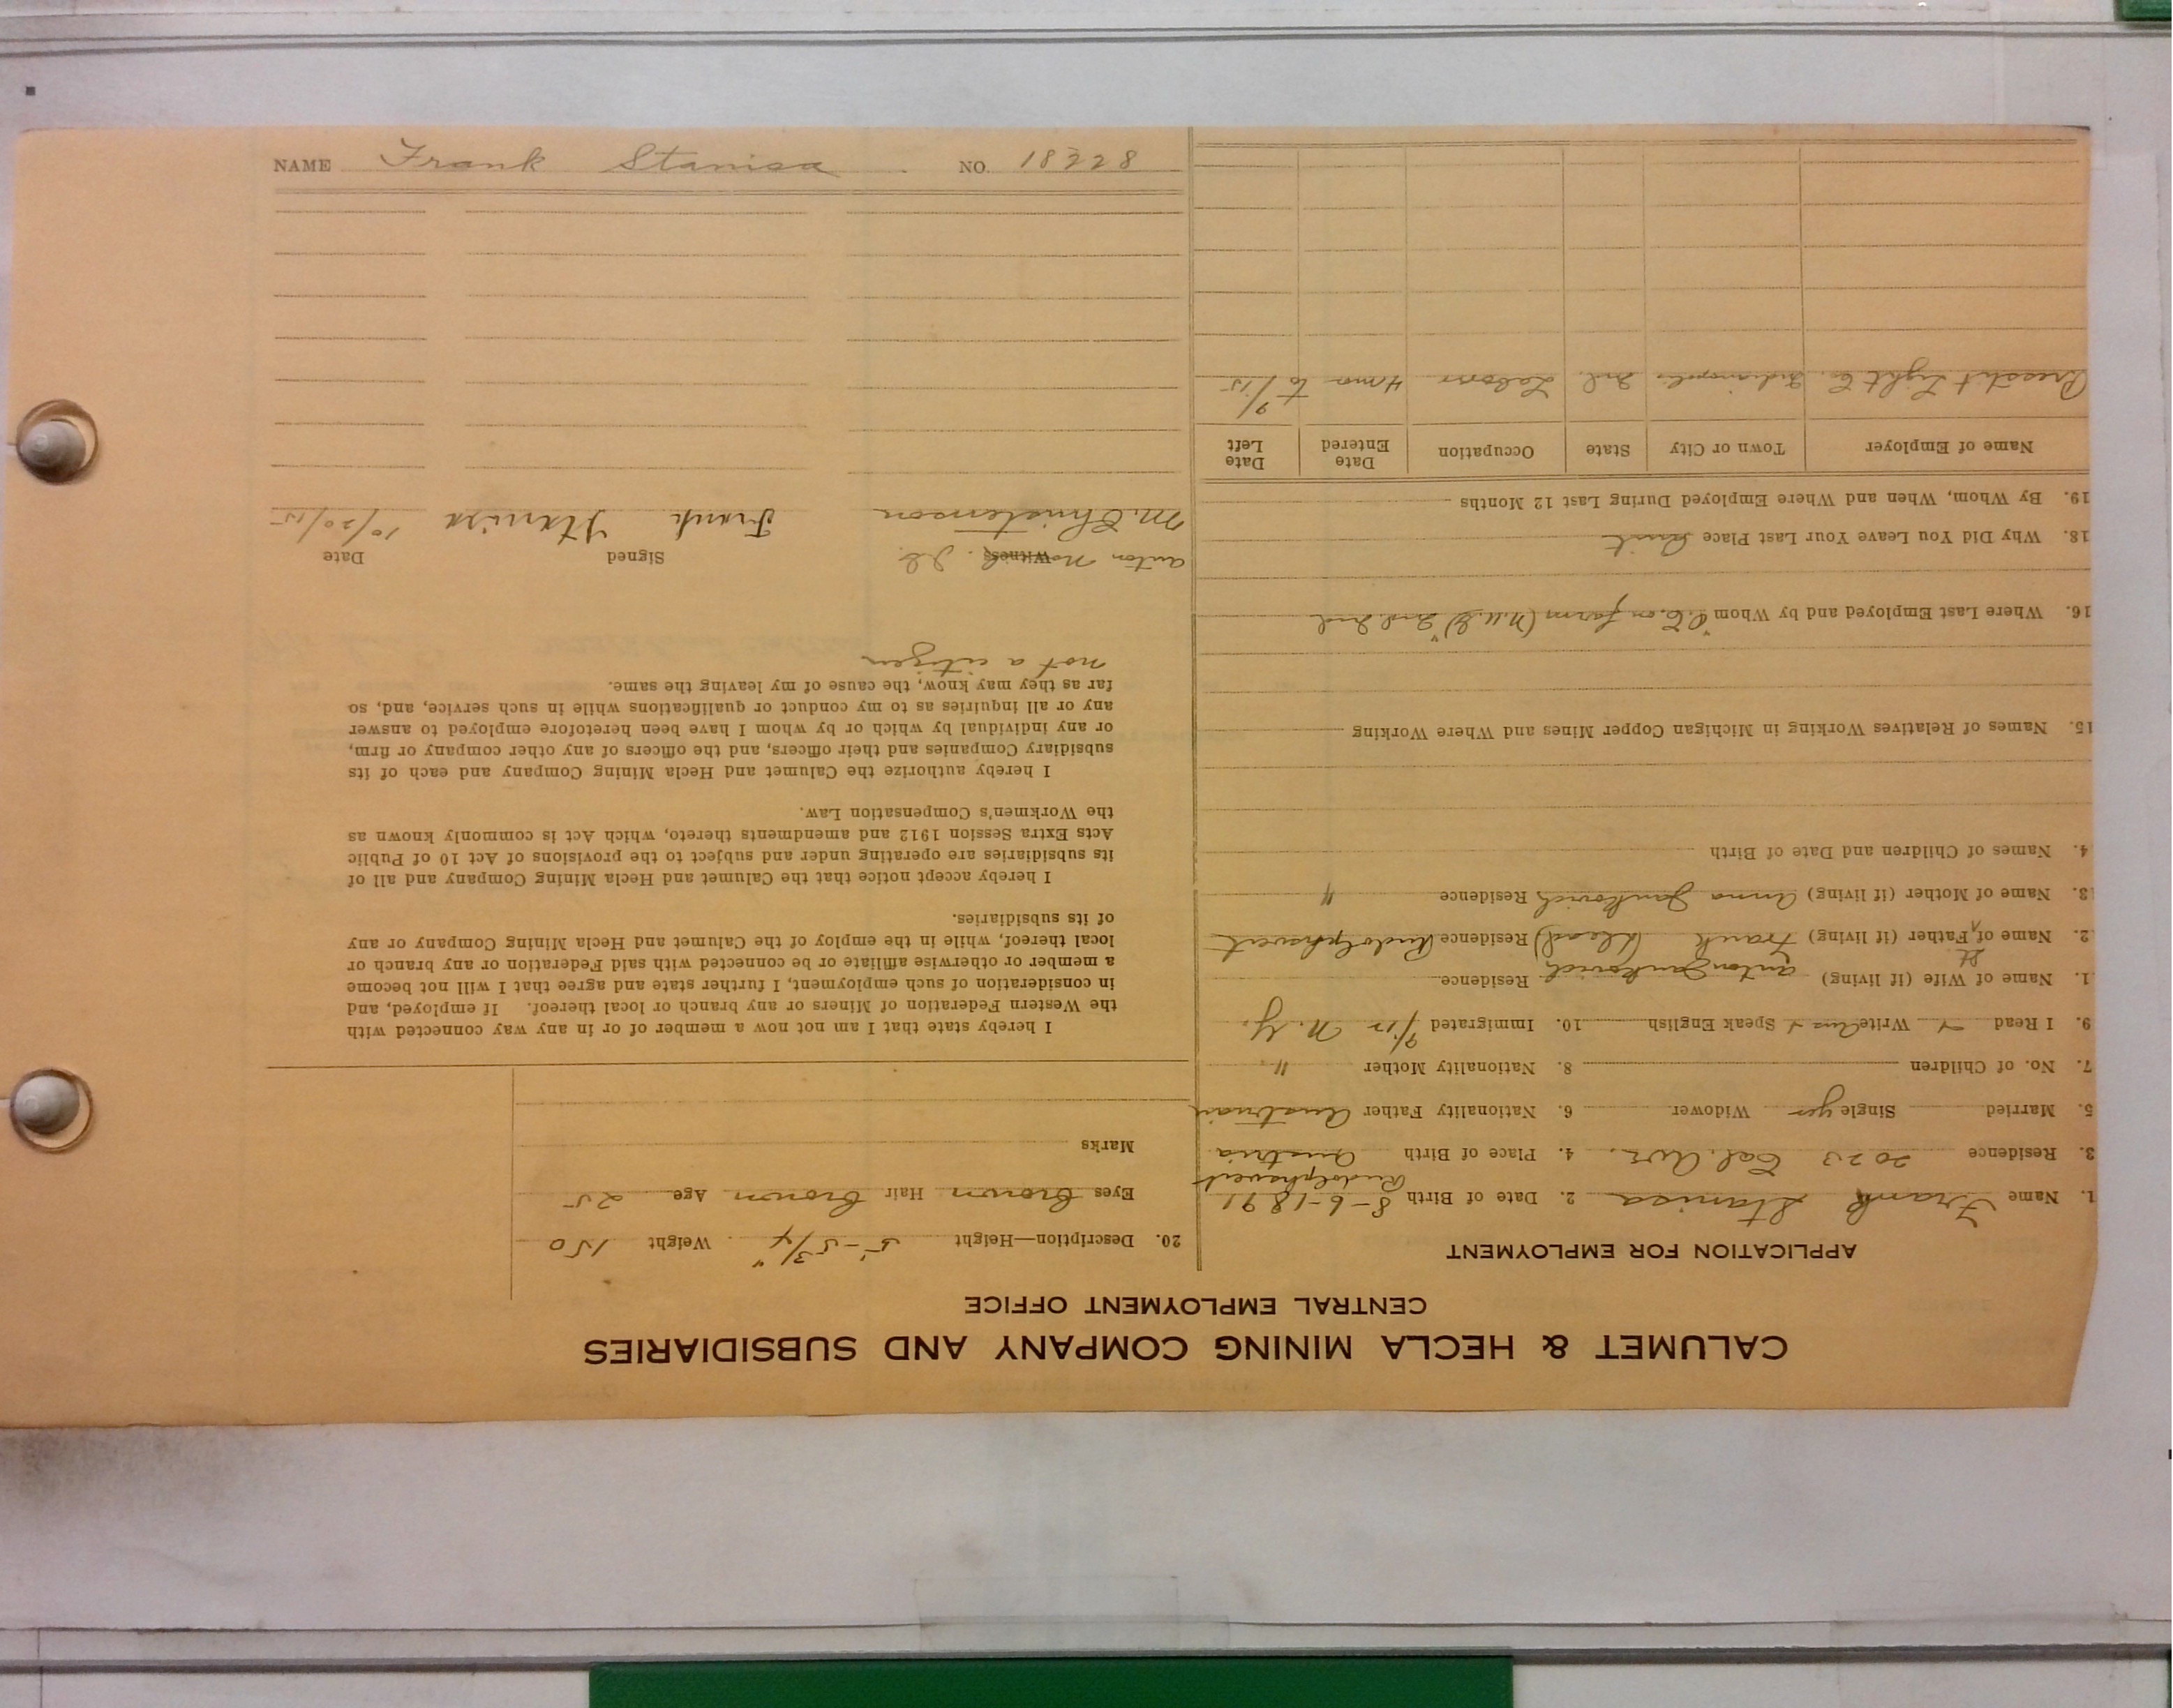 NAME Frank Stanisa NO. 18228
CALUMET & HECLA MINING COMPANY AND SUBSIDIARIES
CENTRAL EMPLOYMENT OFFICE
APPLICATION FOR EMPLOYMENT
1. Name Frank Stanisa 2. Date of Birth 8-6-1891
Rudolphswert
3. Residence 2023 Cal. Ave. 4. Place of Birth Austria
5. Married Single yes Widower 6. Nationality Father Austrian
7. No. of Children 8. Nationality Mother "
9. I Read Write Speak English 10. Immigrated 9/12 N. Y.
1. Name of Wife (if living) Residence
Anton Jankovich
St
2. Name of Father (if living) Frank (dead) Residence Rudolphswert
13. Name of Mother (if living) Anna Jankovich Residence "
4. Names of Children and Date of Birth
15. Names of Relatives Working in Michigan Copper Mines and Where Working
16. Where Last Employed and by Whom on farm
18. Why Did You Leave Your Last Place Quit
19. By Whom, When and Where Employed During Last 12 Months
Name of Employer Town or City State Occupation Date Entered Date Left
Presslit Light Co. Indianapolis Ind. Labor 4 mo to 9/15
20. Description—Height 5'-5 3/4" Weight 150
Eyes Brown Hair Brown Age 25
Marks
I hereby state that I am not now a member of or in any way connected with
the Western Federation of Miners or any branch or local thereof. If employed, and
in consideration of such employment, I further state and agree that I will not become
a member or otherwise affiliate or be connected with said Federation or any branch or
local thereof, while in the employ of the Calumet and Hecla Mining Company or any
of its subsidiaries.
I hereby accept notice that the Calumet and Hecla Mining Company and all of
its subsidiaries are operating under and subject to the provisions of Act 10 of Public
Acts Extra Session 1912 and amendments thereto, which Act is commonly known as
the Workmen's Compensation Law.
I hereby authorize the Calumet and Hecla Mining Company and each of its
subsidiary Companies and their officers, and the officers of any other company or firm,
or any individual by which or by whom I have been heretofore employed to answer
any or all inquiries as to my conduct or qualifications while in such service, and, so
far as they may know, the cause of my leaving the same.
not a citizen
Witness Signed Date
Anton
M. Christenson Frank Stanisa 10/20/15